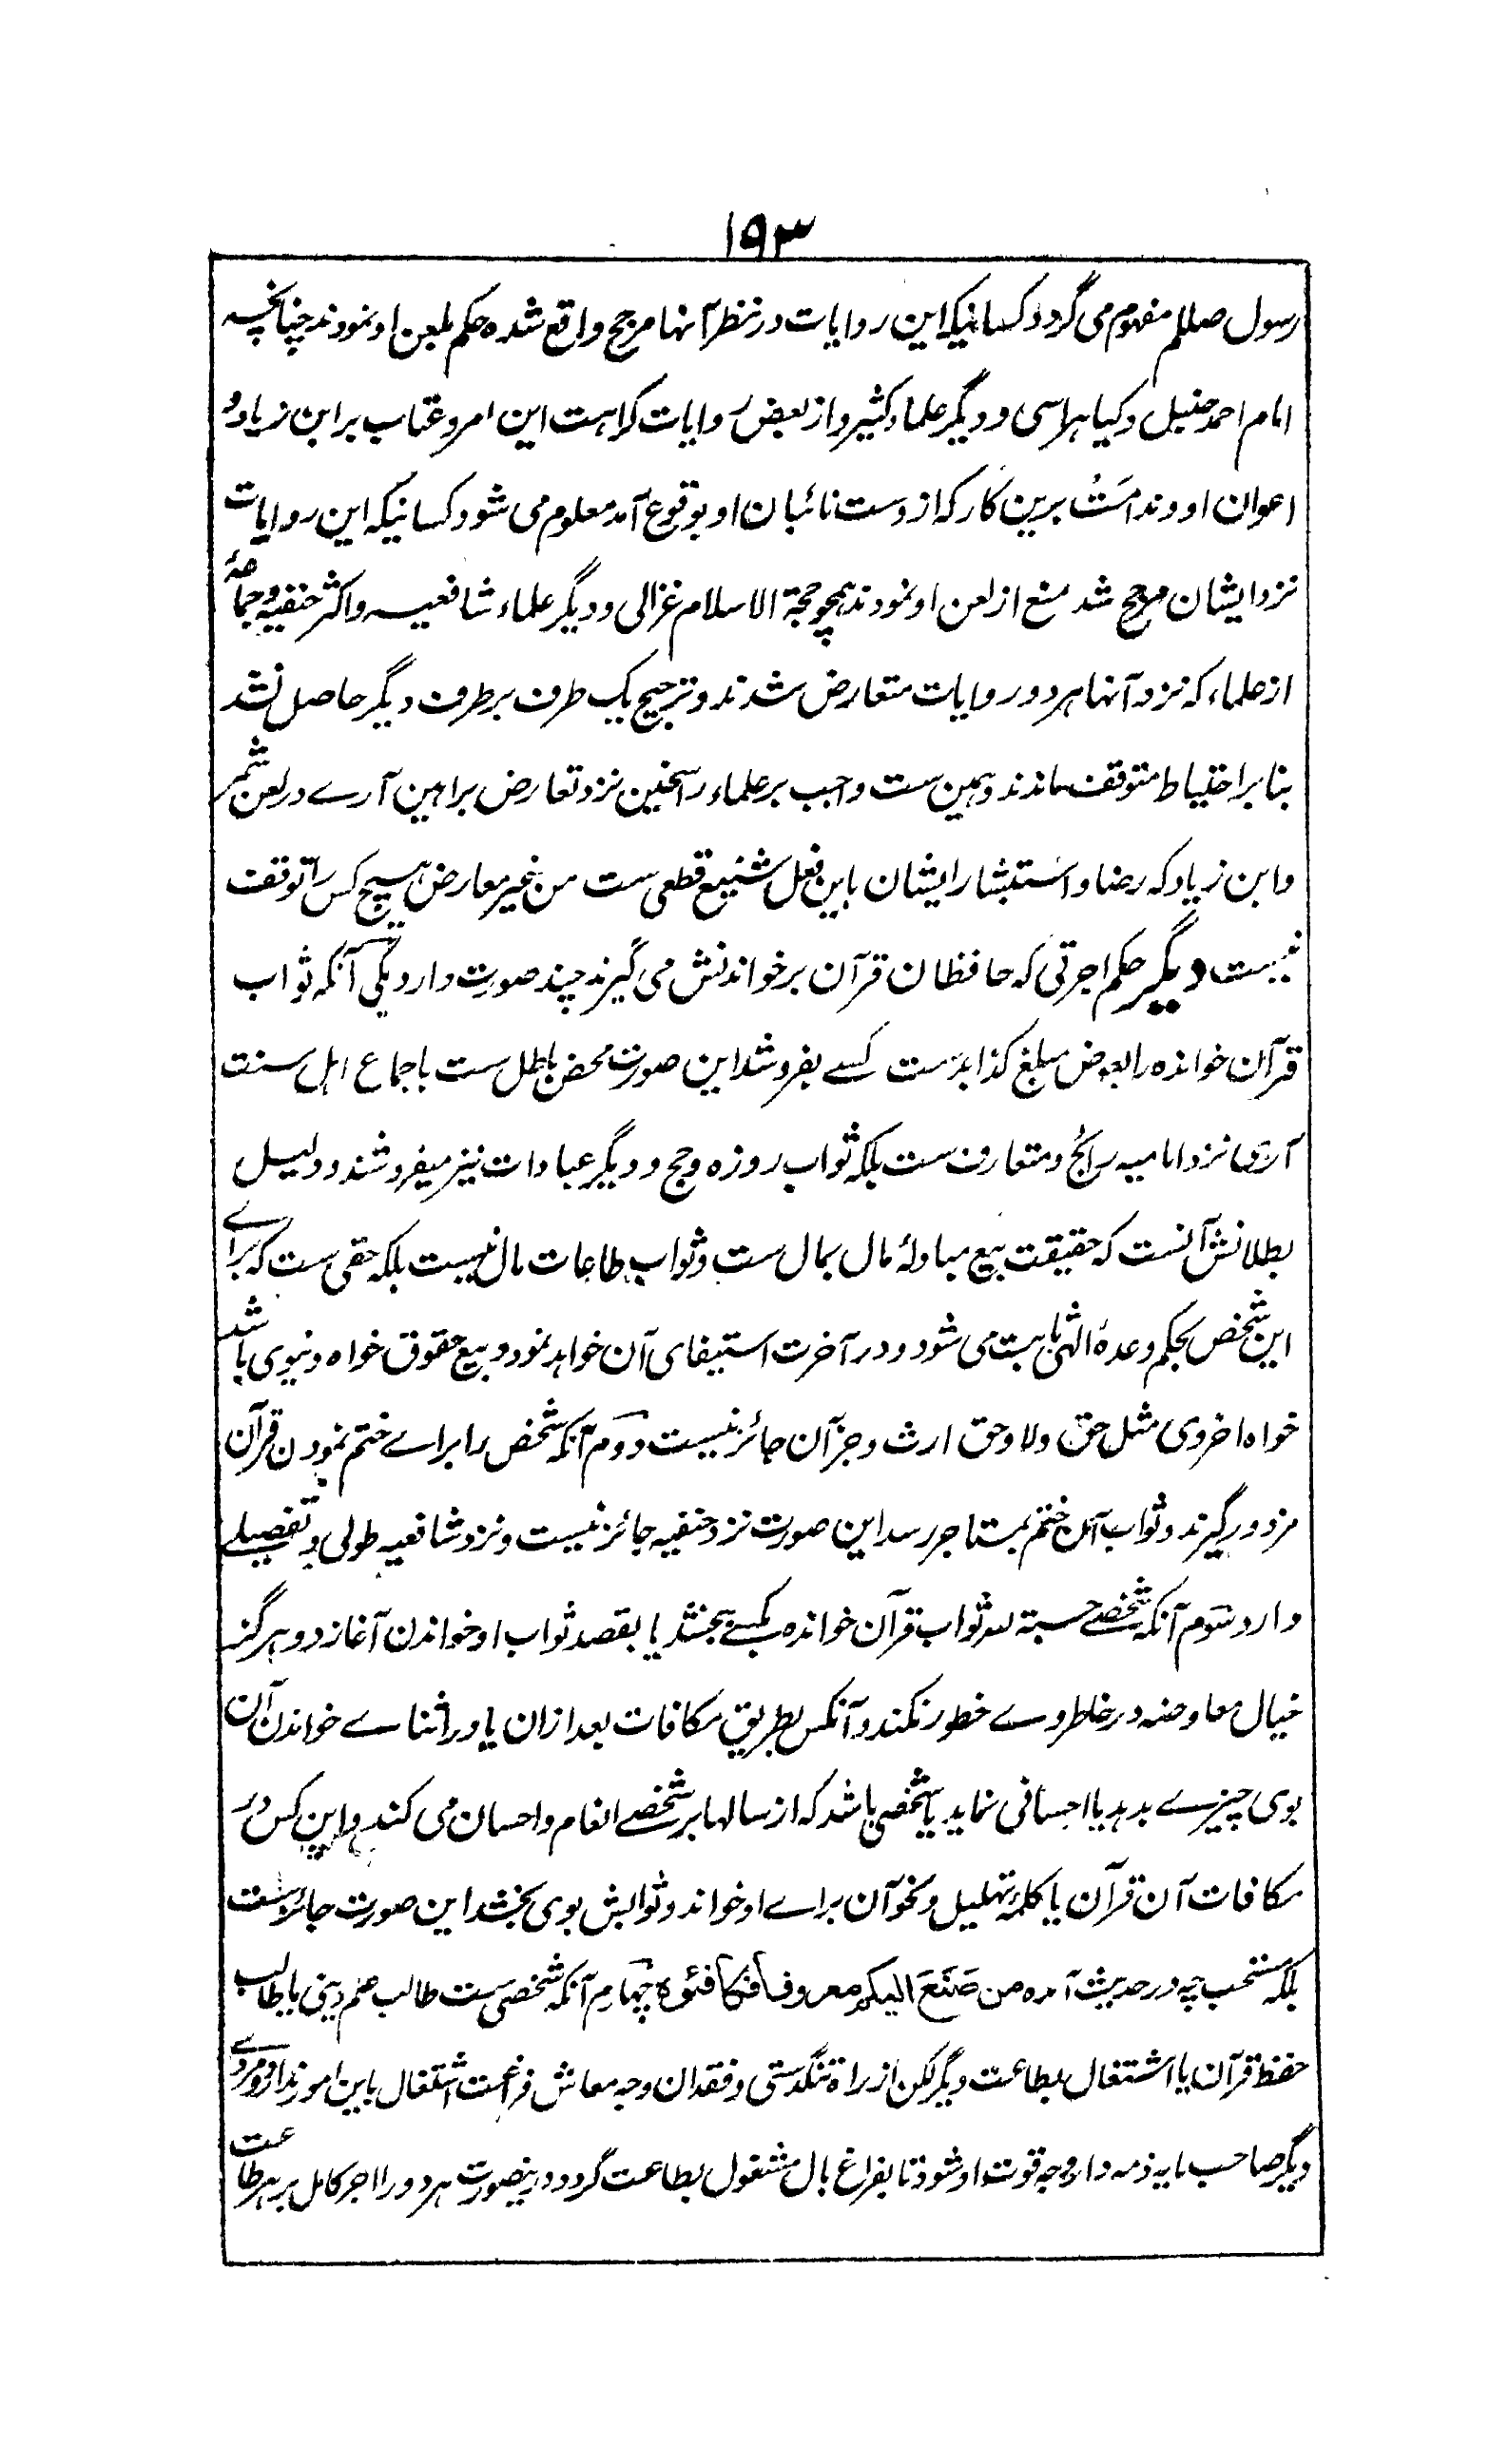 ۱۹۳
رسول صللم مفهوم می گردد کسانیکه این روایات در نظر آنها مرجح واقع شده حکم بلعن او نمودند چنانچه
امام احمد حنبل و کیا هراسی و دیگر علماء کثیر و از بعض روایات کراهت این امر و عتاب بر ابن زیاد و
اعوان او و ندامت برین کار که از دست نائبان او بوقوع آمد معلوم می شود کسانیکه این روایات
نزد ایشان مرجح شد منع از لعن او نمودند همچو حجة الاسلام غزالی و دیگر علماء شافعیه و اکثر حنفیه و جماعهٔ
از علماء که نزد آنها هر دو روایات متعارض شدند و ترجیح یک طرف بر طرف دیگر حاصل نشد
بنا بر احتیاط متوقف ماندند و همین ست واجب بر علماء راسخین نزد تعارض براهین آرے در لعن شمر
و ابن زیاد که رضا و استبشار ایشان باین فعل شنیع قطعی ست من غیر معارض هیچ کس را توقف
نیست دیگر حکم اجرتی که حافظان قرآن بر خواندنش می گیرند چند صورت دارد یکی آنکه ثواب
قرآن خوانده را بعوض مبلغ کذا بدست کسے بفروشد این صورت محض باطل ست باجماع اهل سنت
آری نزد امامیه رائج و متعارف ست بلکه ثواب روزه و حج و دیگر عبادات نیز میفروشند و دلیل
بطلانش آنست که حقیقت بیع مبادلهٔ مال بمال ست و ثواب طاعات مال نیست بلکه حقی ست که براے
این شخص بحکم وعدهٔ الٰهی ثابت می شود و در آخرت استیفای آن خواهد نمود و بیع حقوق خواه دنیوی باشد
خواه اخروی مثل حق ولا و حق ارث و جز آن جائز نیست دوم آنکه شخص را براے ختم نمودن قرآن
مزدور گیرند و ثواب آن ختم بمستاجر رسد این صورت نزد حنفیه جائز نیست و نزد شافعیه طولی و تفصیلے
دارد سوم آنکه شخصے حسبة لله ثواب قرآن خوانده بکسے بخشد یا بقصد ثواب او خواندن آغازد و هرگز
خیال معاوضه در خاطر وے خطور نکند و آنکس بطریق مکافات بعد ازان یا در اثناے خواندن آن
بوی چیزے بدهد یا احسانی نماید یا شخصی باشد که از سالها بر شخصے انعام و احسان می کند و این کس در
مکافات آن قرآن یا کلمهٔ تهلیل و نحو آن براے او خواند و ثوابش بوی بخشد این صورت جائز ست
بلکه مستحب چه در حدیث آمده من صَنَعَ الیکم معروفا فکافئوه چهارم آنکه شخصی ست طالب علم دینی یا طالب
حفظ قرآن یا اشتغال بطاعت دیگر لکن از راه تنگدستی و فقدان وجه معاش فراغت اشتغال باین امور ندارد و مردے
دیگر صاحب مایه ذمه دار وجه قوت او شود تا بفراغ بال مشغول بطاعت گردد درینصورت هر دو را اجر کامل بر هر طاعت